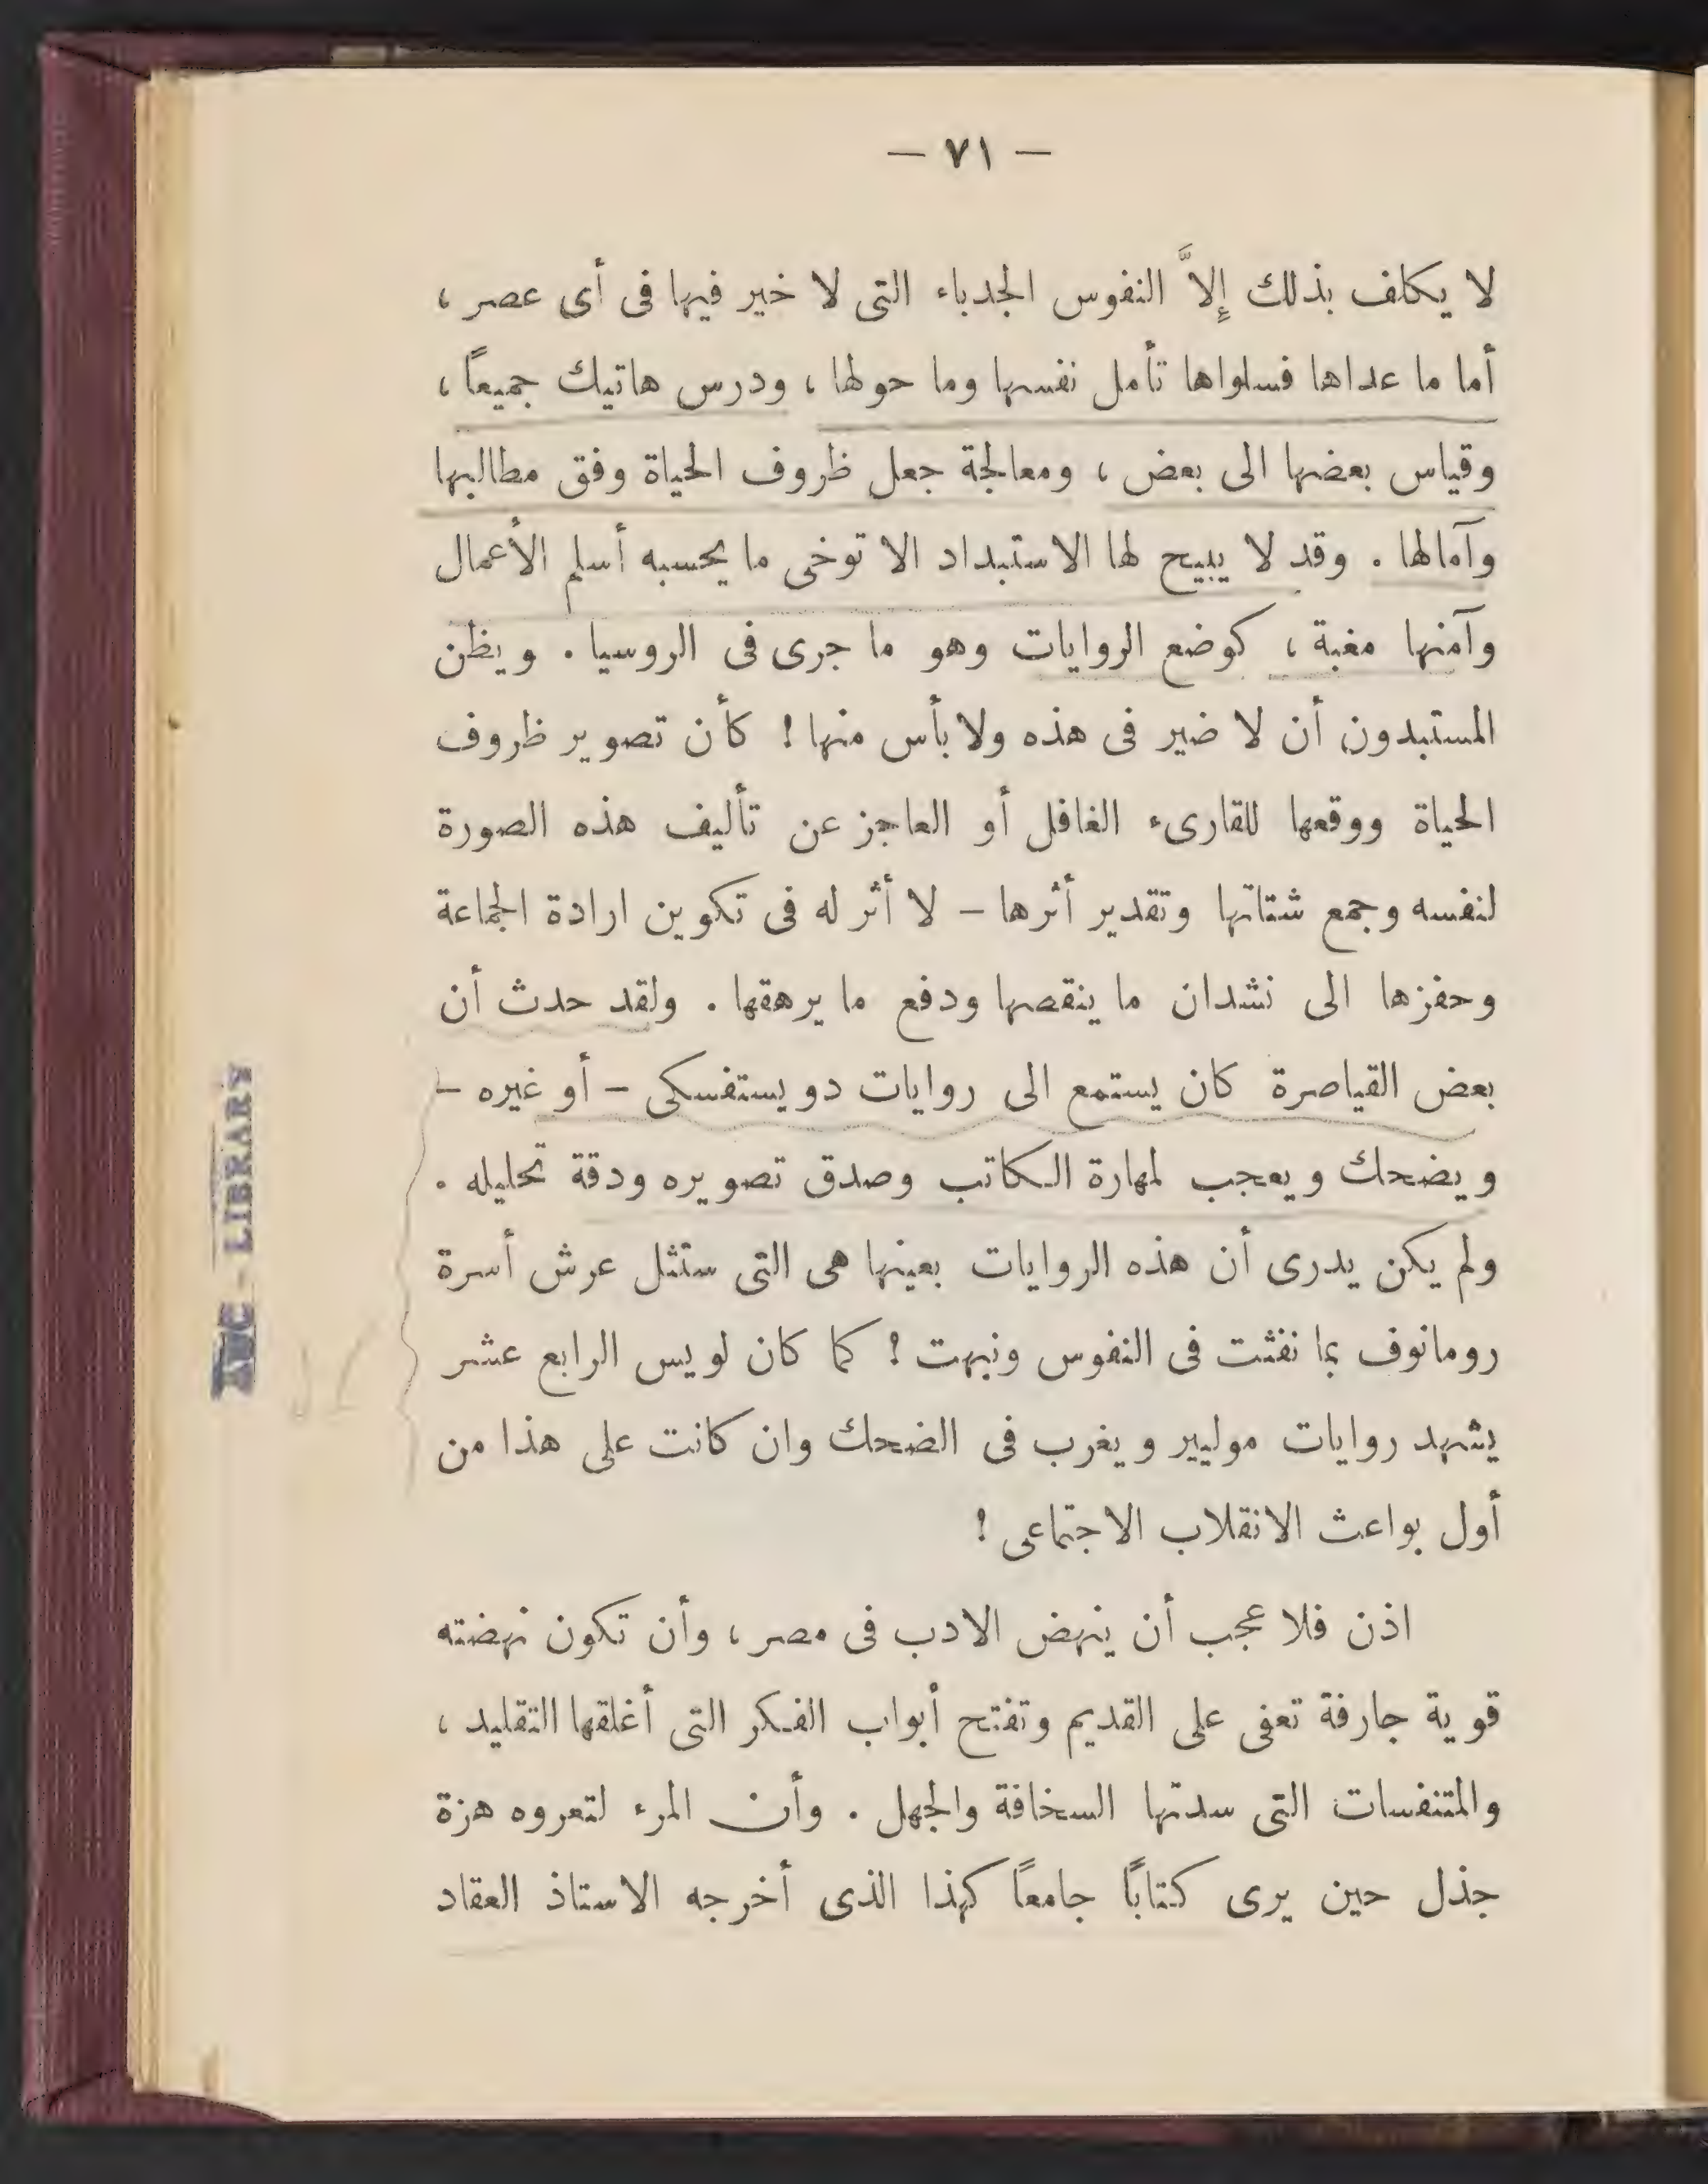 — ٧١ —
لا يكلف بذلك إلاَّ النفوس الجدباء التى لا خير فيها فى أى عصر ،
أما ما عداها فسلواها تأمل نفسها وما حولها ، ودرس هاتيك جميعاً ،
وقياس بعضها الى بعض ، ومعالجة جعل ظروف الحياة وفق مطالبها
وآمالها . وقد لا يبيح لها الاستبداد الا توخى ما يحسبه أسلم الأعمال
وآمنها مغبة ، كوضع الروايات وهو ما جرى فى الروسيا . ويظن
المستبدون أن لا ضير فى هذه ولا بأس منها ! كأن تصوير ظروف
الحياة ووقعها للقارىء الغافل أو العاجز عن تأليف هذه الصورة
لنفسه وجمع شتاتها وتقدير أثرها — لا أثر له فى تكوين ارادة الجماعة
وحفزها الى نشدان ما ينقصها ودفع ما يرهقها . ولقد حدث أن
بعض القياصرة كان يستمع الى روايات دويستفسكى — أو غيره —
ويضحك ويعجب لمهارة الكاتب وصدق تصويره ودقة تحليله .
ولم يكن يدرى أن هذه الروايات بعينها هى التى ستثل عرش أسرة
رومانوف بما نفثت فى النفوس ونبهت ! كما كان لويس الرابع عشر
يشهد روايات موليير ويغرب فى الضحك وان كانت على هذا من
أول بواعث الانقلاب الاجتماعى !
اذن فلا عجب أن ينهض الادب فى مصر ، وأن تكون نهضته
قوية جارفة تعفى على القديم وتفتح أبواب الفكر التى أغلقها التقليد ،
والمتنفسات التى سدتها السخافة والجهل . وأن المرء لتعروه هزة
جذل حين يرى كتابًا جامعاً كهذا الذى أخرجه الاستاذ العقاد
AUC - LIBRARY